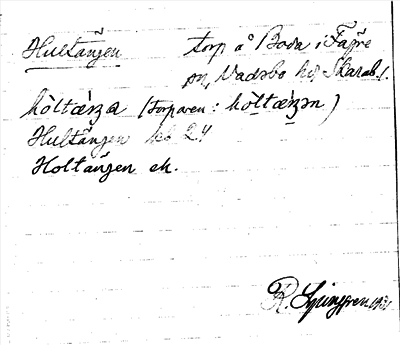 Hultängen torp å Boda i Fägre
sn, Vadsbo hd, Skarab. l.
hòltæ̀ŋa (torparen: hòltæ̀ŋən)
Hultängen kb 24
Holtängen ek.
R. Ljunggren